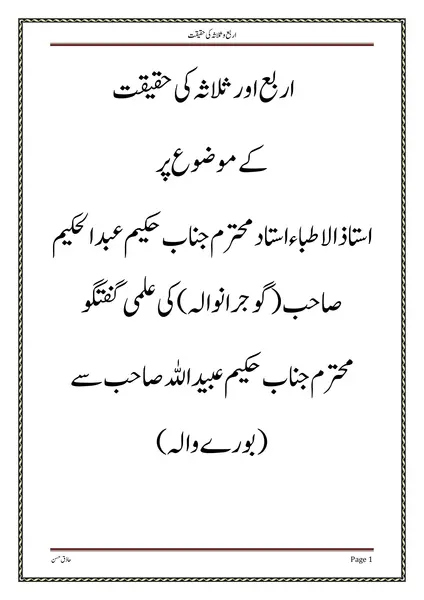 اربع و ثلاثہ کی حقیقت
اربع اور ثلاثہ کی حقیقت
کے موضوع پر
استاذ الاطباء استاد محترم جناب حکیم عبد الحکیم
صاحب (گوجرانوالہ) کی علمی گفتگو
محترم جناب حکیم عبید اللہ صاحب سے
(بورے والہ)
حاذق حسن
Page 1